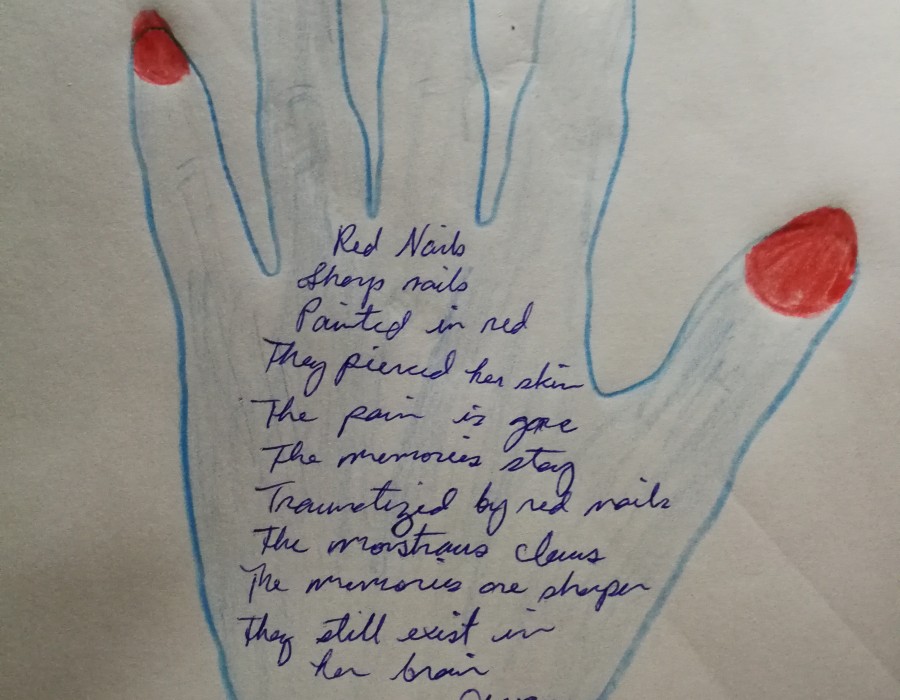 Red Nails
Sharp nails
Painted in red
They pierced her skin
The pain is gone
The memories stay
Traumatized by red nails
The monstrous claws
The memories are sharper
They still exist in
her brain